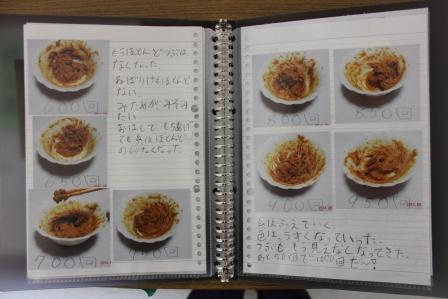 もうほとんどつぶは
なくなった。
ねばりけもほとんど
ない。
みためがみそみ
たい
おはしでもち上げ
ても糸はほとんど
のびなくなった。
600回
650回
700回
750回
800回
850回
900回
950回
色は、うすくなっていった。
つぶも もう見えなくなってきた。
あと50回で1000回だっ!